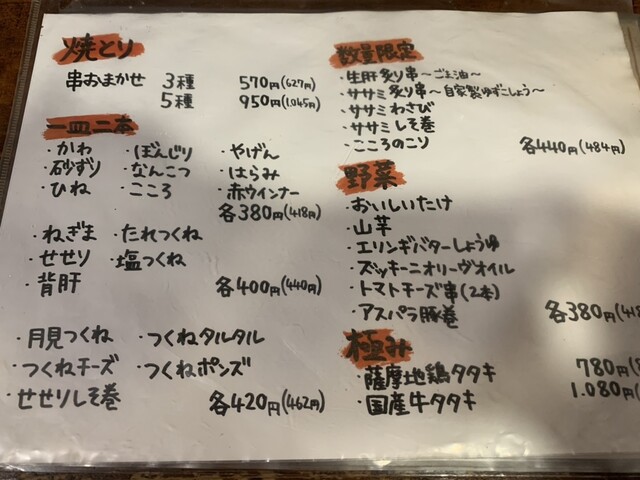 焼とり
串おまかせ 3種 570円(627円)
5種 950円(1.045円)
一皿二本
・かわ ・ぼんじり ・やげん
・砂ずり ・なんこつ ・はらみ
・ひね ・こころ ・赤ウインナー
各380円(418円)
・ねぎま ・たれつくね
・せせり ・塩つくね
・背肝 各400円(440円)
・月見つくね ・つくねタルタル
・つくねチーズ ・つくねポンズ
・せせりしそ巻 各420円(462円)
数量限定
・生肝炙り串〜ごま油〜
・ササミ炙り串〜自家製ゆずこしょう〜
・ササミわさび
・ササミしそ巻
・こころのこり 各440円(484円)
野菜
・おいしいたけ
・山芋
・エリンギバターしょうゆ
・ズッキーニオリーヴオイル
・トマトチーズ串(2本)
・アスパラ豚巻 各380円(418
極み
・薩摩地鶏タタキ 780円(
・国産牛タタキ 1.080円(